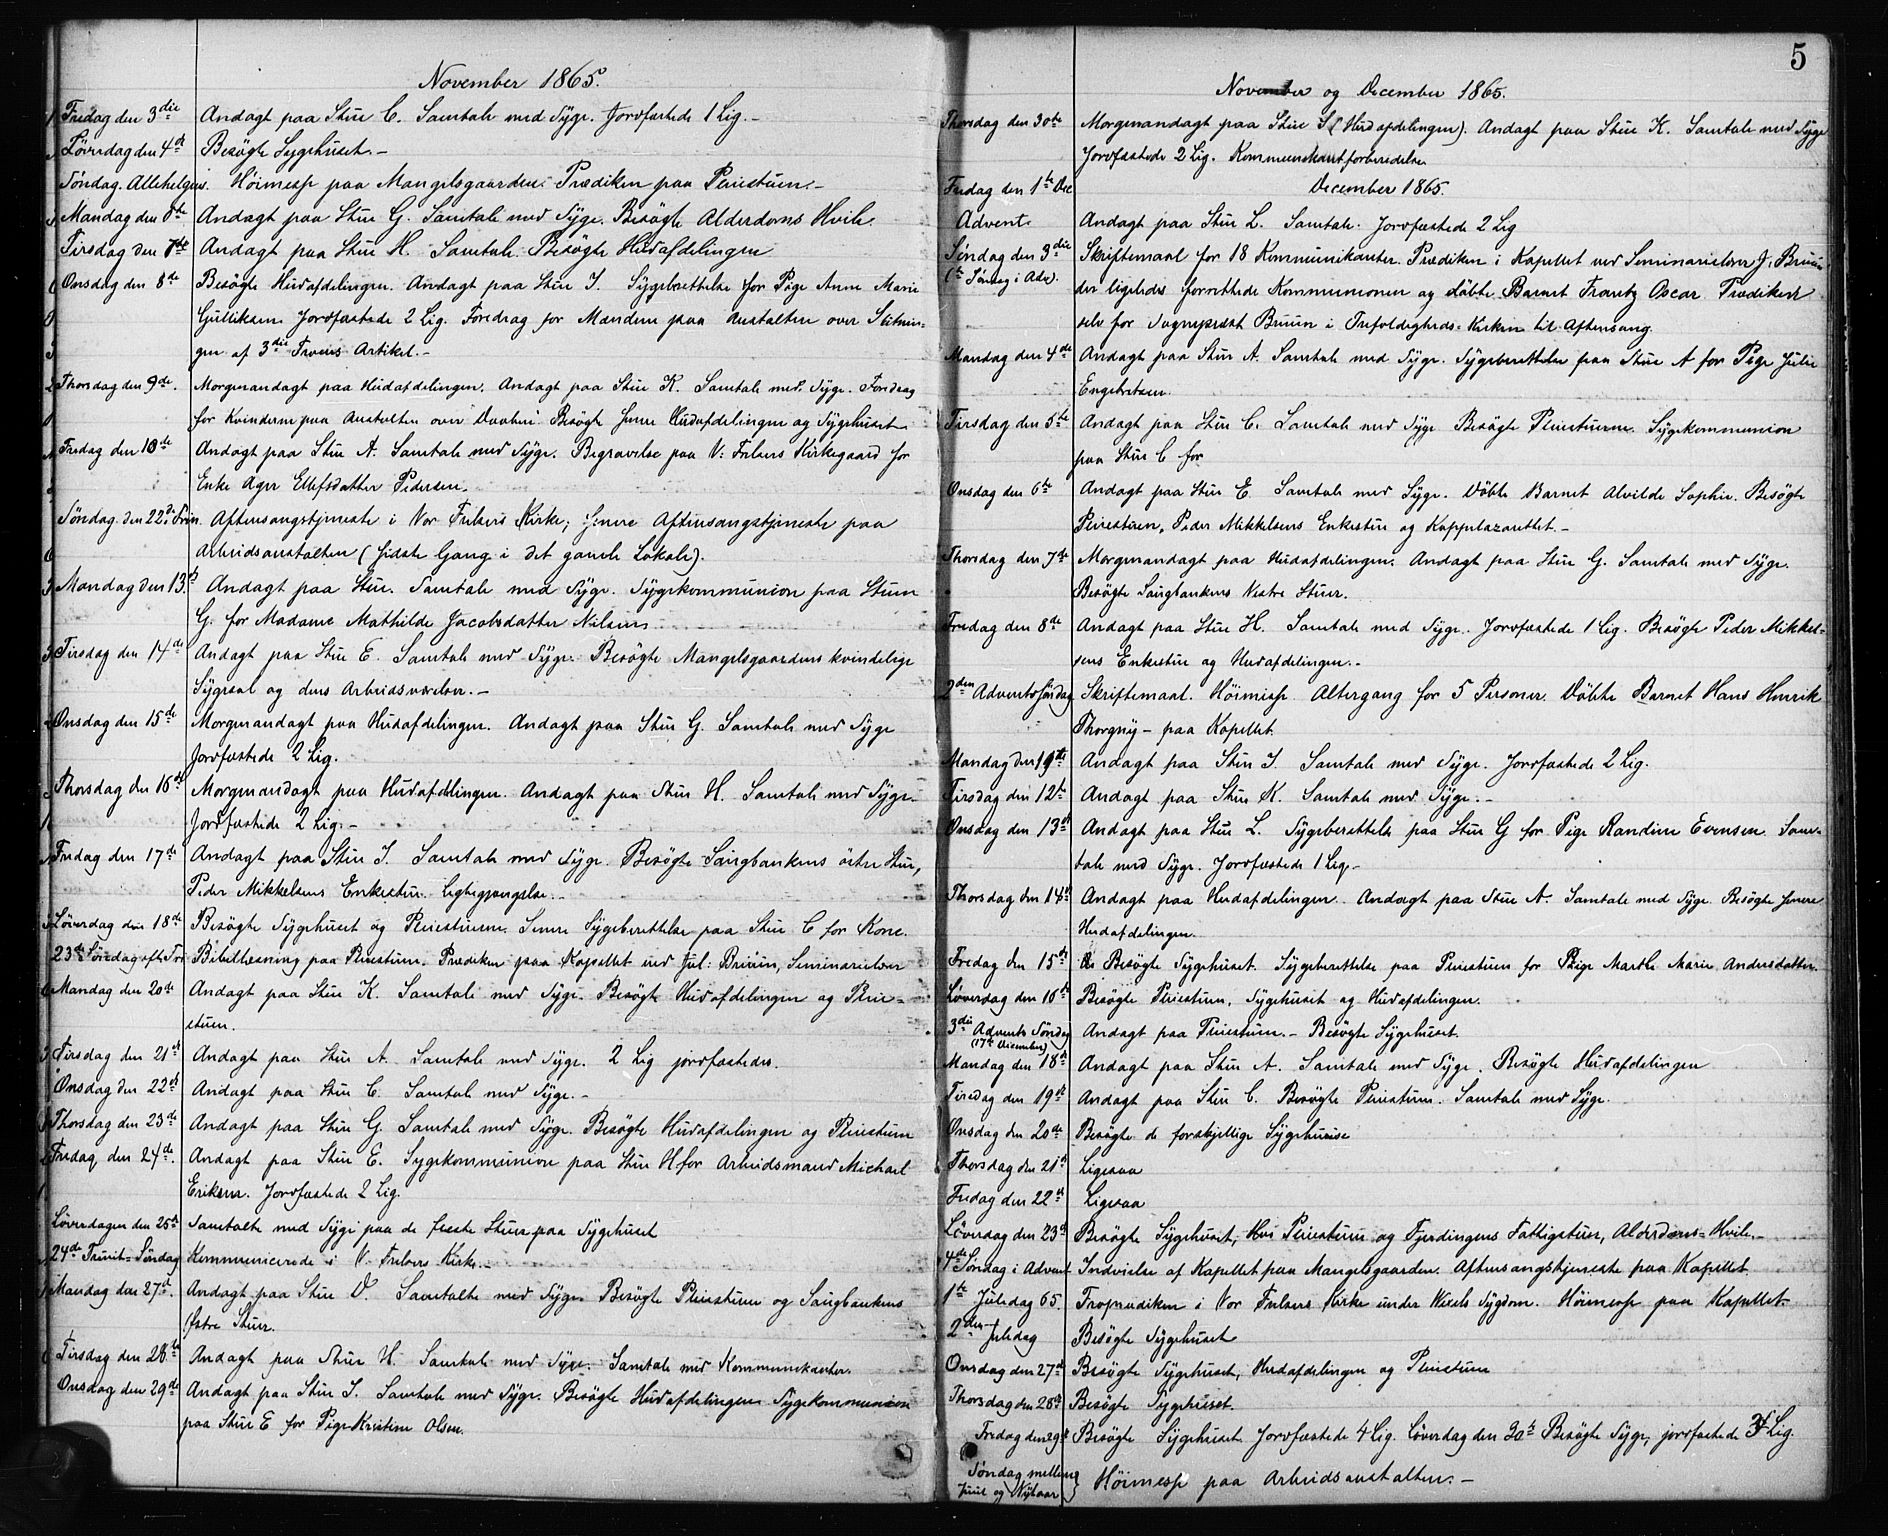 November 1865.
Fredag den 3die Andagt paa Stue C. Samtale med Syge. Jordfæstede 1 Lig.-
Løverdag den 4de Besøgte Sygehuset.-
Søndag. Allehelgens. Høimesse paa Mangelsgaarden. Prædiken paa Pleiestuen.-
Mandag den 6te Andagt paa Stue G. Samtale med Syge. Besøgte Alderdoms Hvile.
Tirsdag den 7de Andagt paa Stue H. Samtale. Besøgte Hudafdelingen
Onsdag den 8de Besøgte Hudafdelingen. Andagt paa Stue I. Sygeberettelse for Pige Anne Marie
Gulliksen. Jordfæstede 2 Lig. Foredrag for Mændene paa Anstalten over Slutnin-
gen af 3die Troens Artikel.-
Thorsdag den 9de. Morgenandagt paa Hudafdelingen. Andagt paa Stue K. Samtale med Syge. Foredrag
for Kvinderne paa Anstalten over Daaben. Besøgte Hudafdelingen og Sygehuset
Fredag den 10de Andagt paa Stue A. Samtale med Syge. Begravelse paa V: Frelsers Kirkegaard for
Enke Ellefsdatter Pedersen.
Søndag. den 22de Trin. Aftensangstjeneste i Vor Frelsers Kirke; Senere Aftensangstjeneste paa
Arbeidsanstalten (sidste Gang i det gamle Lokale).
Mandag den 13. Andagt paa Stue. Samtale med Syge. Sygekommunion paa Stuen
G. for Madame Mathilde Jacobsdatter Nilsen
Tirsdag den 14de Andagt paa Stue E. Samtale med Syge. Besøgte Mangelsgaardens kvindelige
Sygesal og dens Arbeidsværelser.-
Onsdag den 15de Morgenandagt paa Hudafdelingen. Andagt paa Stue G. Samtale med Syge
Jordfæstede 2 Lig.
Thorsdag den 16de Morgenandagt paa Hudafdelingen. Andagt paa Stue H. Samtale med Syge.
Jordfæstede 2 Lig.-
Fredag den 17de Andagt paa Stue I. Samtale med Syge. Besøgte Saugbankens östre Stue,
Peder Mikkelsens Enkestue. Ligtegjængelse.-
Løverdag den 18de Besøgte Sygehuset og Pleiestuerne. Senere Sygeberettelse paa Stue C for Kone.
23de Søndag eft. Tri Bibellæsning paa Pleiestuen. Prædiken paa Kapellet ved Jul: Bruun, Seminarielærer
Mandag den 20de Andagt paa Stue K. Samtale med Syge. Besøgte Hudafdelingen og Pleie-
stuen.
Tirsdag den 21de Andagt paa Stue A. Samtale med Syge. 2 Lig jordfæstedes.
Onsdag den 22de Andagt paa Stue C. Samtale med Syge.-
Thorsdag den 23de Andagt paa Stue G. Samtale med Syge. Besøgte Hudafdelingen og Pleiestuen
Fredag den 24de. Andagt paa Stue E. Sygekommunion paa Stue H for Arbeidsmand Michael
Eriksen. Jordfæstede 2 Lig.
Løverdagen den 25de Samtalte med Syge paa de fleste Stuer paa Sygehuset
24de Trinit-Søndag Kommunicerede i V. Frelsers Kirke.-
Mandag den 27de. Andagt paa Stue D. Samtalte med Syge. Besøgte Pleiestuen og Saugbankens
östre Stuer.
Tirsdag den 28de Andagt paa Stue H. Samtale med Syge. Samtale med Kommunikanter.
Onsdag den 29de Andagt paa Stue I. Samtale med Syge. Besøgte Hudafdelingen Sygekommunion
paa Stue E for Pige Kristine Olsen.
5
November og December 1865.
Thorsdag den 30te Morgenandagt paa Stue S (Hudafdelingen). Andagt paa Stue K. Samtale med Syge
Jordfæstede 2 Lig. Kommunikantforberedelse
Fredag den 1te Dec December 1865.
Advent. Andagt paa Stue L. Samtale. Jordfæstede 2 Lig
Søndag den 3die Skriftemaal for 18 Kommunikanter. Prædiken i Kapellet ved Seminarielærer J. Bruun
(1te Søndag i Adv). der ligeledes forrettede Kommunionen og døbte Barnet Frantz Oscar. Prædiken
selv for Sognepræst Bruun i Trefoldigheds-Kirken til Aftensang.
Mandag den 4de Andagt paa Stue A. Samtale med Syge. Sygeberettelse paa Stue A for Pige Julie
Engebretsen
Tirsdag den 5te Andagt paa Stue C. Samtale med Syge Besøgte Pleiestuerne. Sygekommunion
paa Stue C for
Onsdag den 6te Andagt paa Stue E. Samtale med Syge. Døbte Barnet Alvilde Sophie. Besøgte
Pleiestuen, Peder Mikkelsens Enkestue og Koppelazarettet.-
Thorsdag den 7de Morgenandagt paa Hudafdelingen. Andagt paa Stue G. Samtale med Syge.
Besøgte Saugbankens Vestre Stuer.
Fredag den 8de Andagt paa Stue H. Samtale med Syge. Jordfæstede 1 Lig. Besøgte Peder Mikkel-
sens Enkestue og Hudafdelingen.-
2den Adventssøndag Skriftemaal. Høimesse Altergang for 5 Personer. Døbte Barnet Hans Henrik
Thorgny - paa Kapellet.
Mandag den 1te Andagt paa Stue I. Samtale med Syge. Jordfæstede 2 Lig.
Tirsdag den 12te Andagt paa Stue K. Samtale med Syge.-
Onsdag den 13de Andagt paa Stue L. Sygeberettelse paa Stue G for Pige Randine Evensen. Sam-
tale med Syge. Jordfæstede 1 Lig.-
Thorsdag den 14de Andagt paa Hudafdelingen. Andagt paa Stue A. Samtale med Syge. Besøgte senere
Hudafdelingen.
Fredag den 15de Besøgte Sygehuset. Sygeberettelse paa Pleiestuen for Pige Marthe Marie Andersdatter
Løverdag den 16de Besøgte Pleiestuen, Sygehuset og Hudafdelingen.
3die Advents Søndag
(17de December) Andagt paa Pleiestuen.- Besøgte Sygehuset.
Mandag den 18de Andagt paa Stue A. Samtale med Syge. Besøgte Hudafdelingen
Tirsdag den 19de Andagt paa Stue C. Besøgte Pleiestuen. Samtale med Syge.
Onsdag den 20de Besøgte de forskjellige Sygehuse
Thorsdag den 21de Ligesaa
Fredag den 22de Ligesaa
Løverdag den 23de Besøgte Sygehuset, Pleiestuen og Fjerdingens Fattigstuer, Alderdoms-Hvile.-
4de Søndag i Advent Indvielse af Kapellet paa Mangelsgaarden. Aftensangstjeneste paa Kapellet
1te Juledag 65. Froprædiken i Vor Frelsers Kirke under Wexels Sygdom. Høimesse paa Kapellet.
2den Juledag Besøgte Sygehuset
Onsdag den 27de Besøgte Sygehuset, Hudafdelingen og Pleiestuen
Thorsdag den 28de Besøgte Sygehuset.
Fredag den 29de Besøgte Sygehuset Jordfæstede 4 Lig. Løverdag den 30te Besøgte Syge, jordfæstede 3 Lig.
Søndag mellem
Juul og Nytaar} Høimesse paa Arbeidsanstalten.-